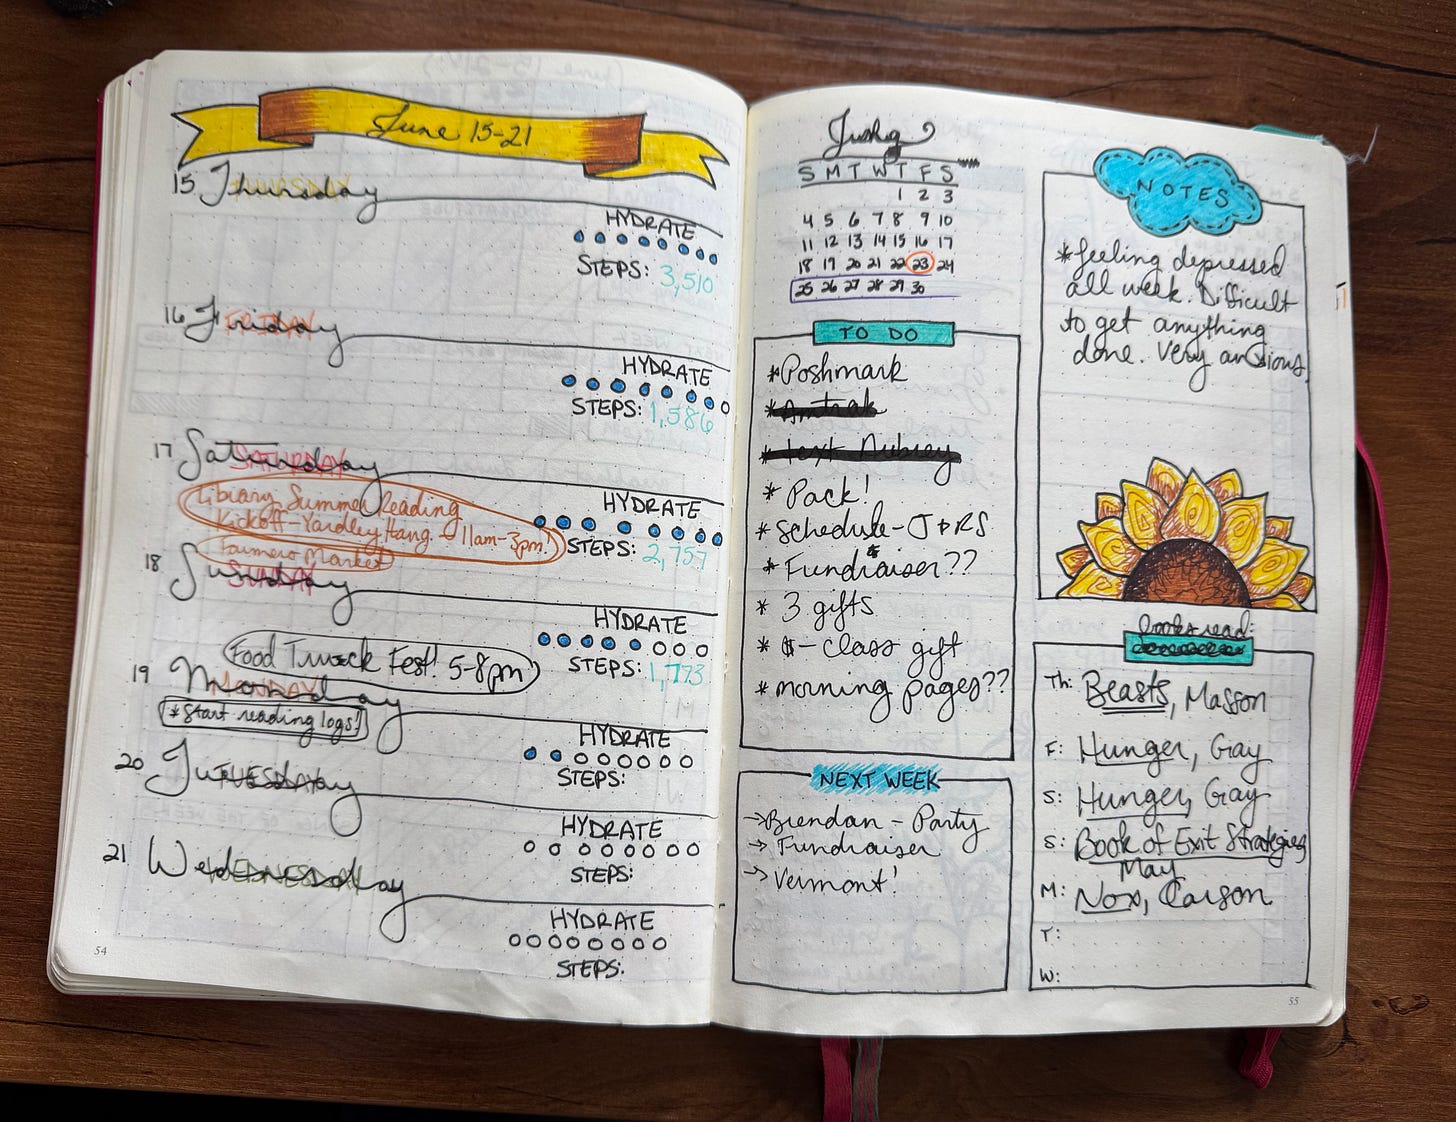 June 15-21
15 Thursday
THURSDAY
HYDRATE
STEPS: 3,510
16 Friday
FRIDAY
HYDRATE
STEPS: 1,586
17 Saturday
SATURDAY
Library Summer Reading
Kickoff - Yardley Hang - 11am-3pm!
Farmers Market
HYDRATE
STEPS: 2,757
18 Sunday
SUNDAY
HYDRATE
Food Truck Fest! 5-8pm
STEPS: 1,773
19 Monday
MONDAY
*Start reading logs!
HYDRATE
STEPS:
20 Tuesday
TUESDAY
HYDRATE
STEPS:
21 Wednesday
WEDNESDAY
HYDRATE
STEPS:
54
S M T W T F S
1 2 3
4 5 6 7 8 9 10
11 12 13 14 15 16 17
18 19 20 21 22 23 24
25 26 27 28 29 30
TO DO
*Poshmark
*Amtrak
*text Aubrey
*Pack!
*Schedule-J+RS
*Fundraiser??
*3 gifts
*$-class gift
*morning pages??
NEXT WEEK
→Brendan - Party
→Fundraiser
→Vermont!
NOTES
*feeling depressed
all week. Difficult
to get anything
done. Very anxious.
books read:
Th: Beasts, Masson
F: Hunger, Gay
S: Hunger, Gay
S: Book of Exit Strategies
May
M: Nox, Carson
T:
W:
55